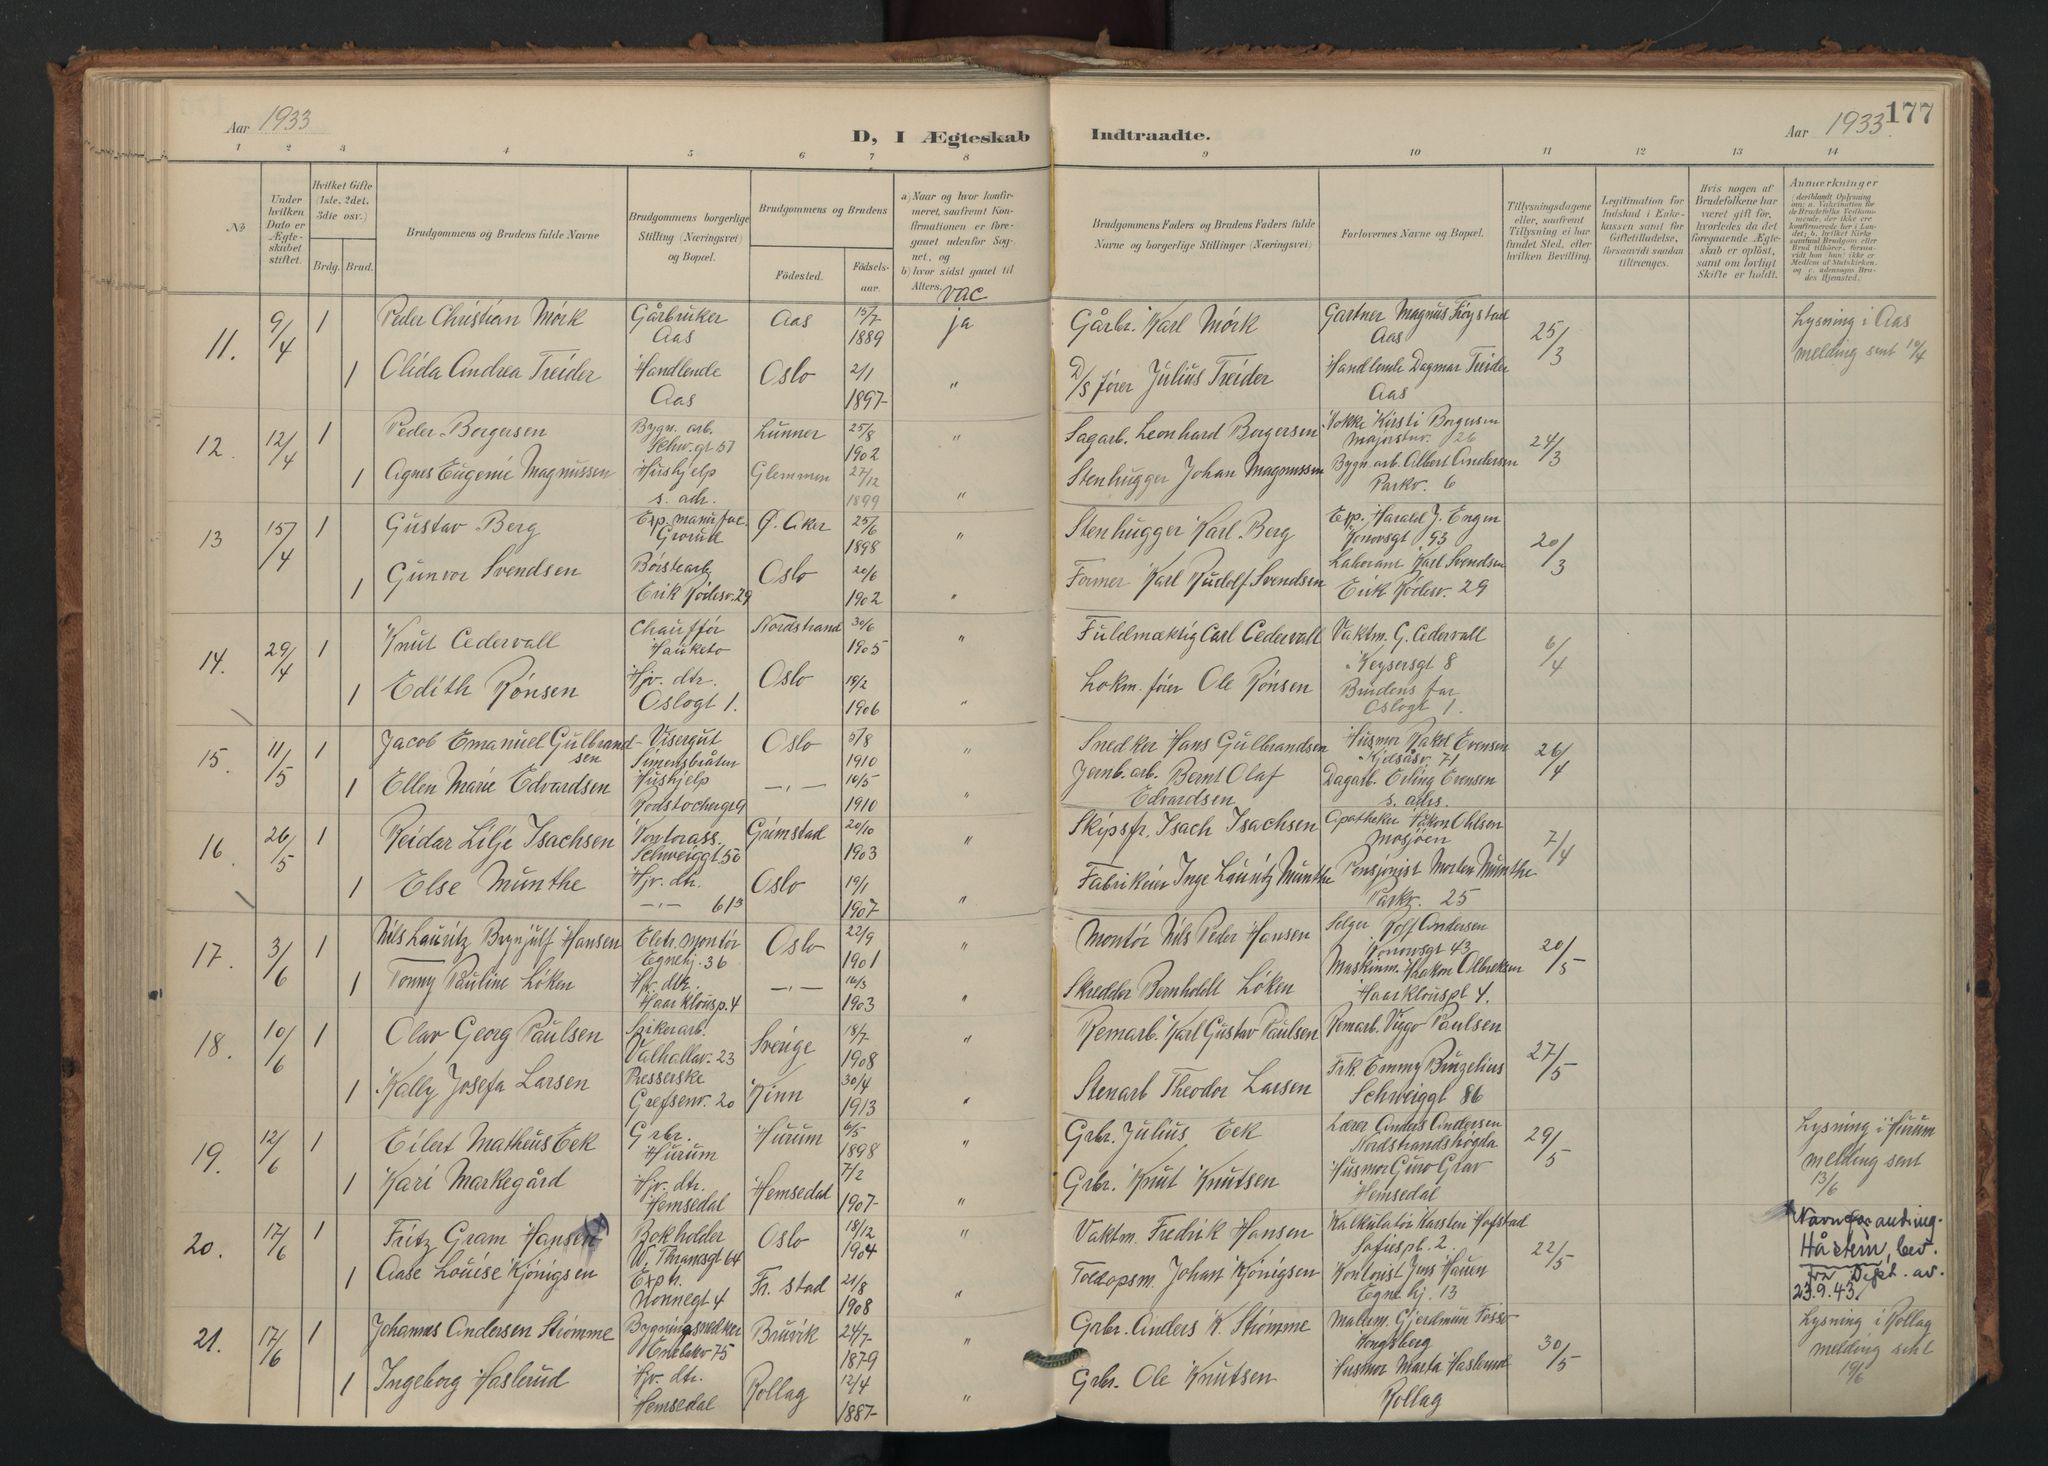 Aar 1933
D, I Ægteskab Indtraadte.
Aar 1933 177
1 2 3 4 5 6 7 8 9 10 11 12 13 14
№
Under hvilken Dato er Ægteskabet stiftet.
Hvilket Gifte (1ste, 2det, 3die osv.)
Brdg. Brud.
Brudgommens og Brudens fulde Navne
Brudgommens borgerlige Stilling (Næringsvei) og Bopæl.
Brudgommens og Brudens
Födested. Födselsaar.
a) Naar og hvor konfirmeret, saafremt Konfirmationen er foregaaet udenfor Sognet, og
b) hvor sidst gaaet til Alters.
vac
Brudgommens Faders og Brudens Faders fulde Navne og borgerlige Stillinger (Næringsvei)
Forlovernes Navne og Bopæl.
Tillysningsdagene eller, saafremt Tillysning ei har fundet Sted, efter hvilken Bevilling.
Legitimation for Indskud i Enkekassen samt for Giftetilladelse, forsaavidt saadan tiltrænges.
Hvis nogen af Brudefolkene har været gift för, hvorledes da det foregaaende Ægteskab er oplöst, samt om lovligt Skifte er holdt.
Anmærkninger
11. 9/4 1 Peder Christian Mørk Gårbruker Aas Aas 15/7 1889 ja Gårbr. Karl Mørk Gartner Magnus Frøystad Aas 25/3 Lysning i Aas melding sent 10/4
1 Olida Andrea Treider Handlende Aas Oslo 2/1 1897 " D/s fører Julius Treider Handlende Dagmar Treider Aas
12. 12/4 1 Peder Borgersen Bygn. arb. Schw. gt 51 Lunner 25/8 1902 " Sagarb. Leonhard Borgersen Kokke Kirsti Borgersen Majorstuv. 26 24/3
1 Agnes Eugenie Magnussen Hushjelp s. adr. Glemmen 27/12 1899 " Stenhugger Johan Magnussen Bygn. arb. Albert Andersen Parkv. 6
13 15/4 1 Gustav Berg Exp. manufac. Grorud Ø. Aker 25/6 1898 " Stenhugger Karl Berg Exp. Harald J. Engen 93 20/3
1 Gunvor Svendsen Børstearb Eirik Rødesv. 29 Oslo 20/6 1902 " Former Karl Rudolf Svendsen Laborant Karl Svendsen Eirik Rødesv. 29
14. 29/4 1 Knut Cedervall Chauffør Hauketo Nordstrand 30/6 1905 " Fuldmæktig Carl Cedervall Vaktm. G. Cedervall Keysersgt 8 6/4
1 Edith Rønsen Hjv. dtr. Oslogt 1. Oslo 1906 " Lokm. fører Ole Rønsen Brudens far Oslogt 1.
15. 11/5 1 Jacob Emanuel Gulbrandsen Visergut Simensbråten Oslo 5/8 1910 " Snedker Hans Gulbrandsen Husmor Rakel Evensen Kjelsåsv. 71 26/4
1 Ellen Marie Edvardsen Hushjelp -"- 16/5 1910 " Jernb. arb. Bernt Olaf Edvardsen Dagarb. Erling Evensen s. adrs.
16. 26/5 1 Reidar Lilje Isachsen Kontorass. Schweiggt 50 Grimstad 20/10 1903 " Skipsfr. Isach Isachsen Apotheker Håkon Ohlson Mosjøen 7/4
1 Else Munthe Hjv. dtr. -"- 613 Oslo 19/1 1907 " Fabrikeier Inge Lauritz Munthe Pensjonist Morten Munthe Parkv. 25
17. 3/6 1 Nils Lauritz Brynjulf Hansen Eletr. montør Egnehj. 36 Oslo 22/9 1901 " Montør Nils Peder Hansen Selger Rolf Andersen Konowsgt 43 20/5
1 Tonny Pauline Løken Hjv. dtr. Haarklousp. 4 -"- 16/3 1903 " Skredder Bernholdt Løken Maskinm. Haakon Haarklouspl 4.
18. 10/6 1 Olav Georg Paulsen Spikerarb. Valhallav. 23 Sverige 18/7 1908 " Remarb. Karl Gustav Paulsen Remarb. Viggo Paulsen 27/5
1 Kally Josefa Larsen Presserske Grefsenv. 20 Kinn 30/4 1913 " Stenarb Theodor Larsen Frk. Emmy Brunzelius Schweiggt 86
19. 12/6 1 Eilert Matheus Eek Grbr. Hurum Hurum 6/5 1898 " Grbr. Julius Eek Lærer Anders Andersen Nordstrandshøgda 29/5 Lysning i Hurum melding sent 13/6
1 Kari Markegård Hjv. dtr. Hemsedal Hemsedal 7/2 1907 " Grbr. Knut Knutsen Husmor Guro Grav Hemsedal
20. 17/6 1 Fritz Gram Hansen Bokholder W. Thranesgt 64 Oslo 18/12 1904 Vaktm. Fredrik Hansen Kalkulatør Karsten Hofstad Sofiespl. 2. 22/5 Navneforandring. Håstein, bev. fra Dept. av. 23.9.43.
1 Aase Louise Kjønigsen Exptr. Nonnegt 4 Fr. stad 21/8 1908 " Toldopsm. Johan Kjønigsen Kontorist Jens Hauen Egnehj. 13
21. 17/6 1 Johannes Andersen Strømme Bygningssnedker Enebakv 75 Bruvik 24/7 1879 Grbr. Anders K. Strømme Gjermun Foss Kongsberg 30/5 Lysning i Rollag melding sent 19/6
1 Ingeborg Haslerud Hjv. dtr. Hemsedal Rollag 12/4 1887 " Grbr. Ole Knutsen Husmor Marta Haslerud Rollag